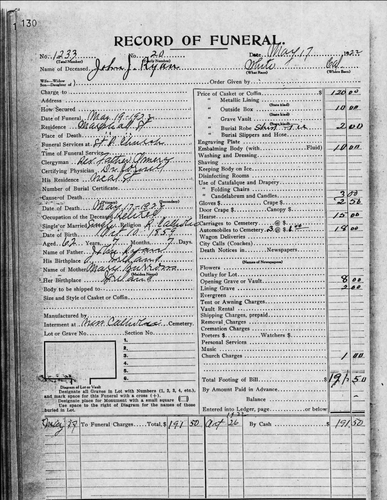 130
RECORD OF FUNERAL.
No. 1233 No. 20 Date May 17
(Total Number) (Yearly Number)
Name of Deceased John J. Ryan White Cal
(What Race) (Where Born)
Wife—Widow
Son—Daughter of
Order Given by
Charge to
Address
How Secured
Date of Funeral May 19-1922
Residence Marshal St
Place of Death
Funeral Services at Church
Time of Funeral Service
Clergyman Rev Father
Certifying Physician
His Residence
Number of Burial Certificate
Cause of Death
Date of Death May 17-1922
Occupation of the Deceased Retired
Single or Married Single Religion R. Catholic
Date of Birth Oct 10 1859
Aged 62 Years, 7 Months, 7 Days
Name of Father John Ryan
His Birthplace Ireland
Name of Mother Mary
(Maiden Name)
Her Birthplace Ireland
Body to be shipped to
Size and Style of Casket or Coffin
Manufactured by
Interment at Cemetery.
Lot or Grave No. Section No.
Diagram of Lot or Vault
Designate all Graves in Lot with Numbers (1, 2, 3, 4, etc.) and mark space for this Funeral with a cross (+).
Designate place for Monument with a small square
Use space to right of Diagram for names of those buried in Lot.
Price of Casket or Coffin $ 120 00
" Metallic Lining
" Outside Box 10 00
" Grave Vault
" Burial Robe 2 00
" Burial Slippers and Hose
Engraving Plate
Embalming Body (with Fluid) 10 00
Washing and Dressing
Shaving
Keeping Body on Ice
Disinfecting Rooms
Use of Catafalque and Drapery
" Folding Chairs
" Candelabrum and Candles 3 00
Gloves $ Crape $ 2 50
Door Crape Gloves $
Hearse 15 00
Carriages to Cemetery @ $
Automobiles to Cemetery 3 @ $ 6 18 00
Wagon Deliveries
City Calls (Coaches)
Death Notices in Newspapers
Flowers
Outlay for Lot
Opening Grave or Vault 8 00
Lining Grave 2 00
Evergreen
Tent or Awning Charges
Vault Rental
Shipping Charges, prepaid
Removal Charges
Cremation Charges
Porters $ Watchers $
Personal Services
Music
Church Charges 1 00
Total Footing of Bill $ 191 50
By Amount Paid in Advance
Balance
Entered into Ledger, page or below
To Funeral Charges Total, $ 191 50
By Cash $ 191 50